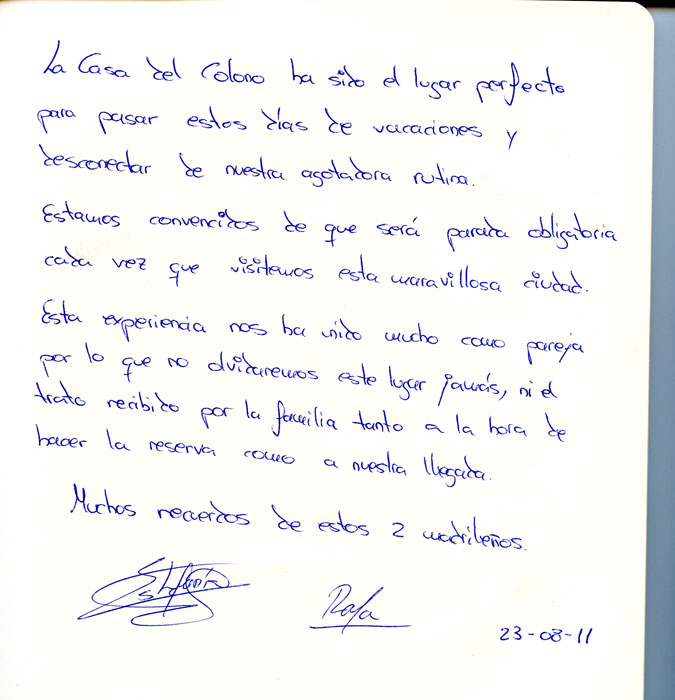 La Casa del Colono ha sido el lugar perfecto
para pasar estos días de vacaciones y
desconectar de nuestra agotadora rutina.
Estamos convencidos de que será parada obligatoria
cada vez que visitemos esta maravillosa ciudad.
Esta experiencia nos ha unido mucho como pareja
por lo que no olvidaremos este lugar jamás, ni el
trato recibido por la familia tanto a la hora de
hacer la reserva como a nuestra llegada.
Muchos recuerdos de estos 2 madrileños.
Estefanía Rafa
23-08-11